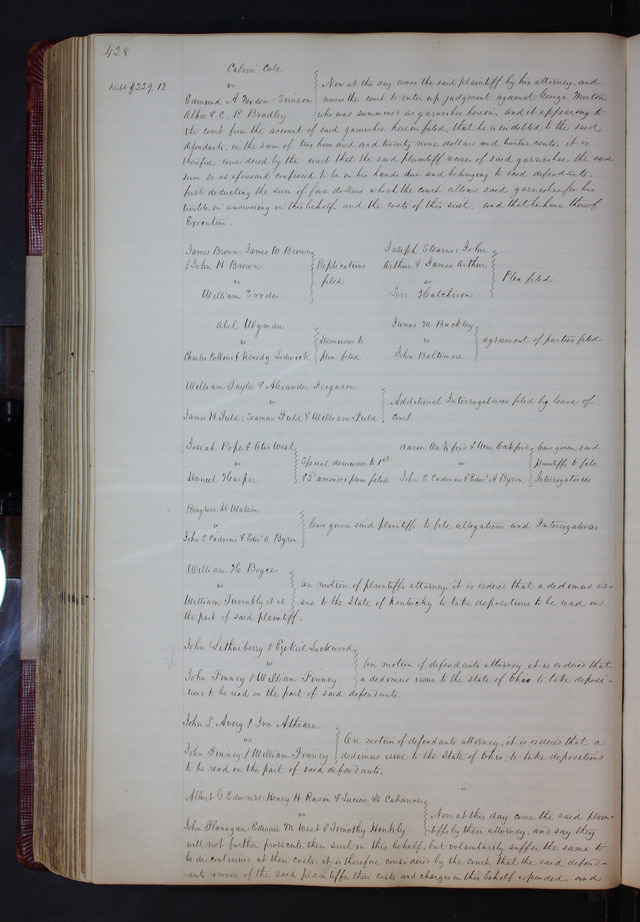 428
Calvin Cole
Debt $229.12
vs
Edmund A Nersen: Simeon
Albee & C. P Bradley
Now at this day comes the said plaintiff by his attorney, and
moves the court to enter up judgment against George Morton
who was summoned as garnishee herein, and it appearing to
the court from the account of said garnishee herein filed, that he is indebted to the said
defendants, in the sum of two hundred and twenty nine dollars and twelve cents. it is
therefore considered by the court that the said plaintiff recover of said garnishee, the said
sum so as aforesaid confessed to be in his hands due and belonging to said defendants.
first deducting the sum of five dollars which the court allows said garnishee for his
trouble in answering in this behalf and the costs of this suit, and that he have thereof
Execution.
James Brown: James W Brown
& John H Brown
vs
William Evodes
Replications
filed
Joseph Stearns: John
Arthur & James Arthur
vs
Levi Hutchison
Plea filed
Abel Wyman
vs
Charles Collins & Kennedy Lodwick
Demurrer to
plea filed
James M Buckley
vs
John Baltimore
agreement of parties filed
William Taylor & Alexander Ferguson
vs
James H Field: Seaman Field & William Field
Additional Interrogatories filed by leave of
Court
Josiah Pope & Otis West
vs
Daniel Harper
Special demurrer to 1st
& 5 amended pleas filed
Aaron Oakford & Wm Oakford
vs
John C Cadmus & Edwd A Byron
leave given said
plaintiffs to file
Interrogatories
D Watson
vs
John C Cadmus & Edwd A Byron
leave given said plaintiffs to file allegations and Interrogatories
William H. Boyce
vs
William Twombly et al
On motion of plaintiffs attorney, it is ordered that a dedimus is-
sue to the State of Kentucky to take depositions to be read on
the part of said plaintiff.
John Lethueberry & Ezekiel Lockwood
vs
John Finney & William Finney
On motion of defendants attorney, it is ordered that
a dedimus issue to the state of Ohio to take deposi-
-tions to be read on the part of said defendants.
John L Avery & Ira Athearn
vs
John Finney & William Finney
On motion of defendants attorney, it is ordered that a
dedimus issue to the State of Ohio, to take depositions
to be read on the part of said defendants.
Albert G Edwards: Henry H Rasin & Lucien D Cabanne
vs
John Flanagan: Edward M West & Timothy Hinkly
Now at this day come the said plain-
-tiffs by their attorney, and say they
will not further prosecute their suit in this behalf, but voluntarily suffer the same to
be discontinued at their costs. it is therefore considered by the court, that the said defend-
-ants recover of the said plaintiffs, their costs and charges in this behalf expended, and